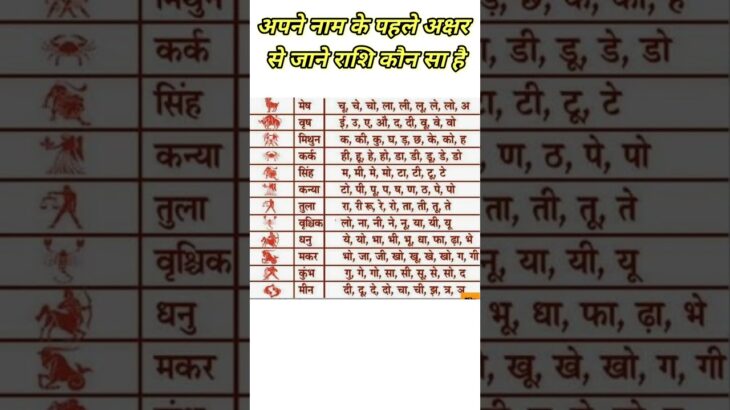 अपने नाम के पहले अक्षर
से जाने राशि कौन सा है
मेष चू, चे, चो, ला, ली, लू, ले, लो, अ
वृष ई, उ, ए, औ, द, दी, वू, वे, वो
मिथुन क, की, कु, घ, ड़, छ, के, को, ह
कर्क ही, हू, हे, हो, डा, डी, डू, डे, डो
सिंह म, मी, मे, मो, टा, टी, टू, टे
कन्या टो, पी, पू, प, ष, ण, ठ, पे, पो
तुला रा, री रू, रे, रो, ता, ती, तू, ते
वृश्चिक लो, ना, नी, ने, नू, या, यी, यू
धनु ये, यो, भा, भी, भू, धा, फा, ढ़ा, भे
मकर भो, जा, जी, खो, खू, खे, खो, ग, गी
कुंभ गु, गे, गो, सा, सी, सू, से, सो, द
मीन दी, दू, दे, दो, चा, ची, झ, त्र, ञ
कर्क डी, डू, डे, डो
सिंह टा, टी, टू, टे
कन्या ण, ठ, पे, पो
तुला ता, ती, तू, ते
वृश्चिक या, यी, यू
धनु भू, धा, फा, ढ़ा, भे
मकर खू, खे, खो, ग, गी